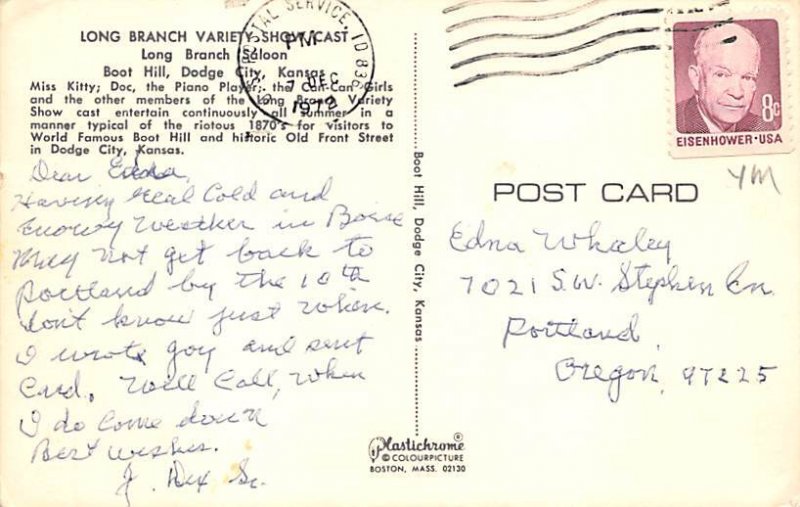 LONG BRANCH VARIETY SHOW CAST
Long Branch Saloon
Boot Hill, Dodge City, Kansas
Miss Kitty; Doc, the Piano Player; the Can-Can Girls
and the other members of the Long Branch Variety
Show cast entertain continuously all summer in a
manner typical of the riotous 1870's for visitors to
World Famous Boot Hill and historic Old Front Street
in Dodge City, Kansas.
POSTAL SERVICE, ID 836
PM
7 DEC
1972
8c
EISENHOWER·USA
YM
Dear Edna,
Having real Cold and
snowy Weather in Boise
May not get back to
Portland by the 10th
don't know just When.
I wrote Joy and sent
Card. Will Call, When
I do Come down
Best wishes.
J. Dex Sr.
Boot Hill, Dodge City, Kansas
POST CARD
Edna Whaley
7021 S.W. Stephen Ln.
Portland,
Oregon, 97225
Plastichrome®
© COLOURPICTURE
BOSTON, MASS. 02130